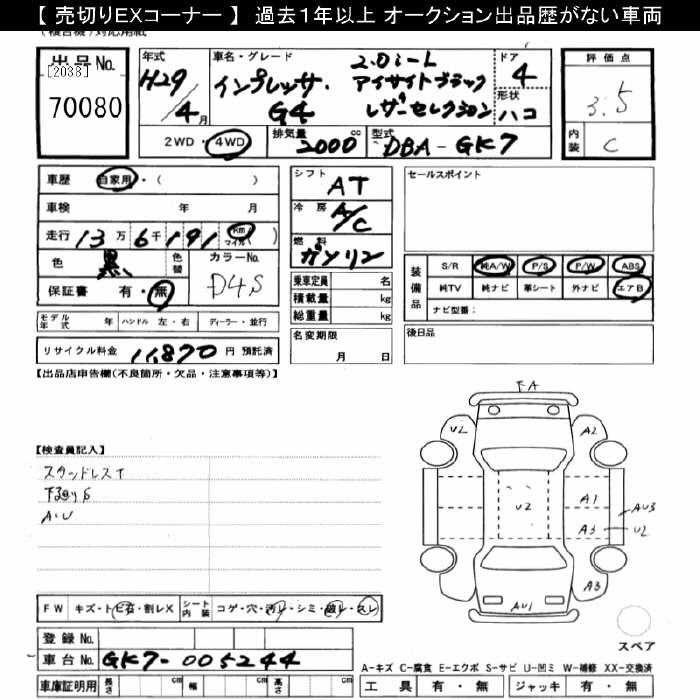 【 売切りEXコーナー 】 過去1年以上 オークション出品歴がない車両
出品No. [2038] 70080
年式 H29/4月
車名・グレード インプレッサ G4 2.0i-L アイサイトブラックレザーセレクション
ドア 4
形状 ハコ
評価点 3.5
内装 C
2WD・4WD
排気量 2000 cc
型式 DBA-GK7
車歴 自家用・( )
車検 年 月
走行 13万6千191 km マイル( )
色 黒 色替 カラーNo. D4S
保証書 有・無
モデル年式 年 ハンドル 左・右 ディーラー・並行
リサイクル料金 11,870 円 預託済
シフト AT
冷房 A/C
燃料 ガソリン
乗車定員 名
積載量 kg
総重量 kg
名変期限 月 日
セールスポイント
装備品 S/R 純A/W P/S P/W ABS
純TV 純ナビ 革シート 外ナビ エアB
ナビ型番:
後日品
【出品店申告欄(不良箇所・欠品・注意事項等)】
【検査員記入】
スタッドレスT
下廻りS
A・U
FW キズ・トビ石・割レX シート内装 コゲ・穴・汚レ・シミ・破レ・スレ
登録No.
車台No. GK7-005244
車庫証明用 長さ cm 幅 cm 高さ cm
FA
U2 A2
U2 A1 AU3
A3 U2
A3
AU1
スペア
A-キズ C-腐食 E-エクボ S-サビ U-凹ミ W-補修 XX-交換済
工具 有・無 ジャッキ 有・無